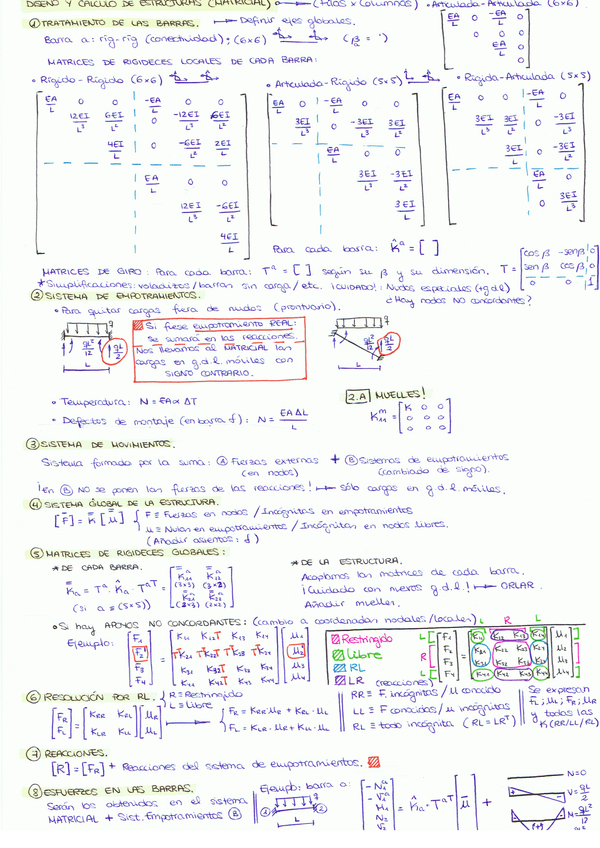 DISEÑO Y CÁLCULO DE ESTRUCTURAS (MATRICIAL) (Filas x Columnas) • Articulada-Articulada (6x6)
① TRATAMIENTO DE LAS BARRAS. → Definir ejes globales.
Barra a: rig-rig (conectividad); (6x6)
MATRICES DE RIGIDECES LOCALES DE CADA BARRA:
EA/L 0 -EA/L 0
0 0 0
EA/L 0
0
• Rígido-Rígido (6x6) • Articulada-Rígido (5x5) • Rígida-Articulada (5x5)
EA/L 0 0 -EA/L 0 0
12EI/L³ 6EI/L² 0 -12EI/L³ 6EI/L²
4EI/L 0 -6EI/L² 2EI/L
EA/L 0 0
12EI/L³ -6EI/L²
4EI/L
EA/L 0 -EA/L 0 0
3EI/L³ 0 -3EI/L³ 3EI/L²
EA/L 0 0
3EI/L³ -3EI/L²
3EI/L
EA/L 0 0 -EA/L 0
3EI/L³ 3EI/L² 0 -3EI/L³
3EI/L 0 -3EI/L²
EA/L 0
0 3EI/L³
Para cada barra: K̂ᵃ = [ ]
MATRICES DE GIRO: Para cada barra: Tᵃ = [ ] según su β y su dimensión. T = [cos β -sen β 0
sen β cos β 0
0 0 1]
*Simplificaciones: voladizos/barras sin carga/etc. ¡CUIDADO!: Nudos especiales (+g.d.l)
② SISTEMA DE EMPOTRAMIENTOS. ¿Hay nodos NO concordantes?
• Para quitar cargas fuera de nudos (prontuario).
Si fuese empotramiento REAL:
Se sumará en las reacciones.
Nos llevamos al MATRICIAL las
cargas en g.d.l. móviles con
SIGNO CONTRARIO.
q
qL²/12 qL/2
L
q
qL²/12 qL/2
L
• Temperatura: N = EA α ΔT
• Defectos de montaje (en barra f): N = EA ΔL/L
2.A MUELLES!
K₁₁ᵐ = [K 0 0
0 0 0
0 0 0]
③ SISTEMA DE MOVIMIENTOS.
Sistema formado por la suma: Ⓐ Fuerzas externas + Ⓑ Sistemas de empotramientos
(en nodos) (cambiado de signo).
¡En Ⓑ NO se ponen las fuerzas de las reacciones! → sólo cargas en g.d.l. móviles.
④ SISTEMA GLOBAL DE LA ESTRUCTURA.
[F̄] = K̄ [μ̄] { F ≡ Fuerzas en nodos / Incógnitas en empotramientos
μ ≡ Nulas en empotramientos / Incógnitas en nodos libres.
(Añadir asientos: δ)
⑤ MATRICES DE RIGIDECES GLOBALES:
* DE CADA BARRA. * DE LA ESTRUCTURA.
K̄a = Tᵃ · K̂a · Tᵃᵀ
(si a = (5x5))
(3x3) (3x2)
(2x3) (2x2)
Acoplamos las matrices de cada barra.
¡Cuidado con nuevos g.d.l.! → ORLAR.
Añadir muelles.
• Si hay APOYOS NO CONCORDANTES: (cambio a coordenadas nodales/locales)
Ejemplo: [F₁
F₂
F₃
F₄]
K₁₁ K₁₂T K₁₃ K₁₄
K₄₁ K₄₂T K₄₃ K₄₄
μ₁
μ₂
μ₃
μ₄
Restringido
Libre
RL
LR (reacciones)
L R L
F₁
F₂
F₃
F₄
⑥ RESOLUCIÓN POR RL. { R ≡ Restringido
L ≡ Libre
[FR
FL] = [KRR KRL
KLR KLL] [μR
μL]
FR = KRR·μR + KRL·μL
FL = KLR·μR + KLL·μL
RR ≡ F. incógnitas / μ conocido
LL ≡ F conocidas / μ incógnitas
RL ≡ todo incógnita (RL = LRᵀ)
Se expresan
FL; μL; FR; μR
y todas las
K(RR/LL/RL)
⑦ REACCIONES.
[R] = [FR] + Reacciones del sistema de empotramientos.
⑧ ESFUERZOS EN LAS BARRAS.
Serán los obtenidos en el sistema
MATRICIAL + Sist. Empotramientos Ⓑ
Ejemplo: barra a:
L
= K̂a · Tᵃᵀ [μ̄] +
N=0
V= qL/2
M= qL²/12